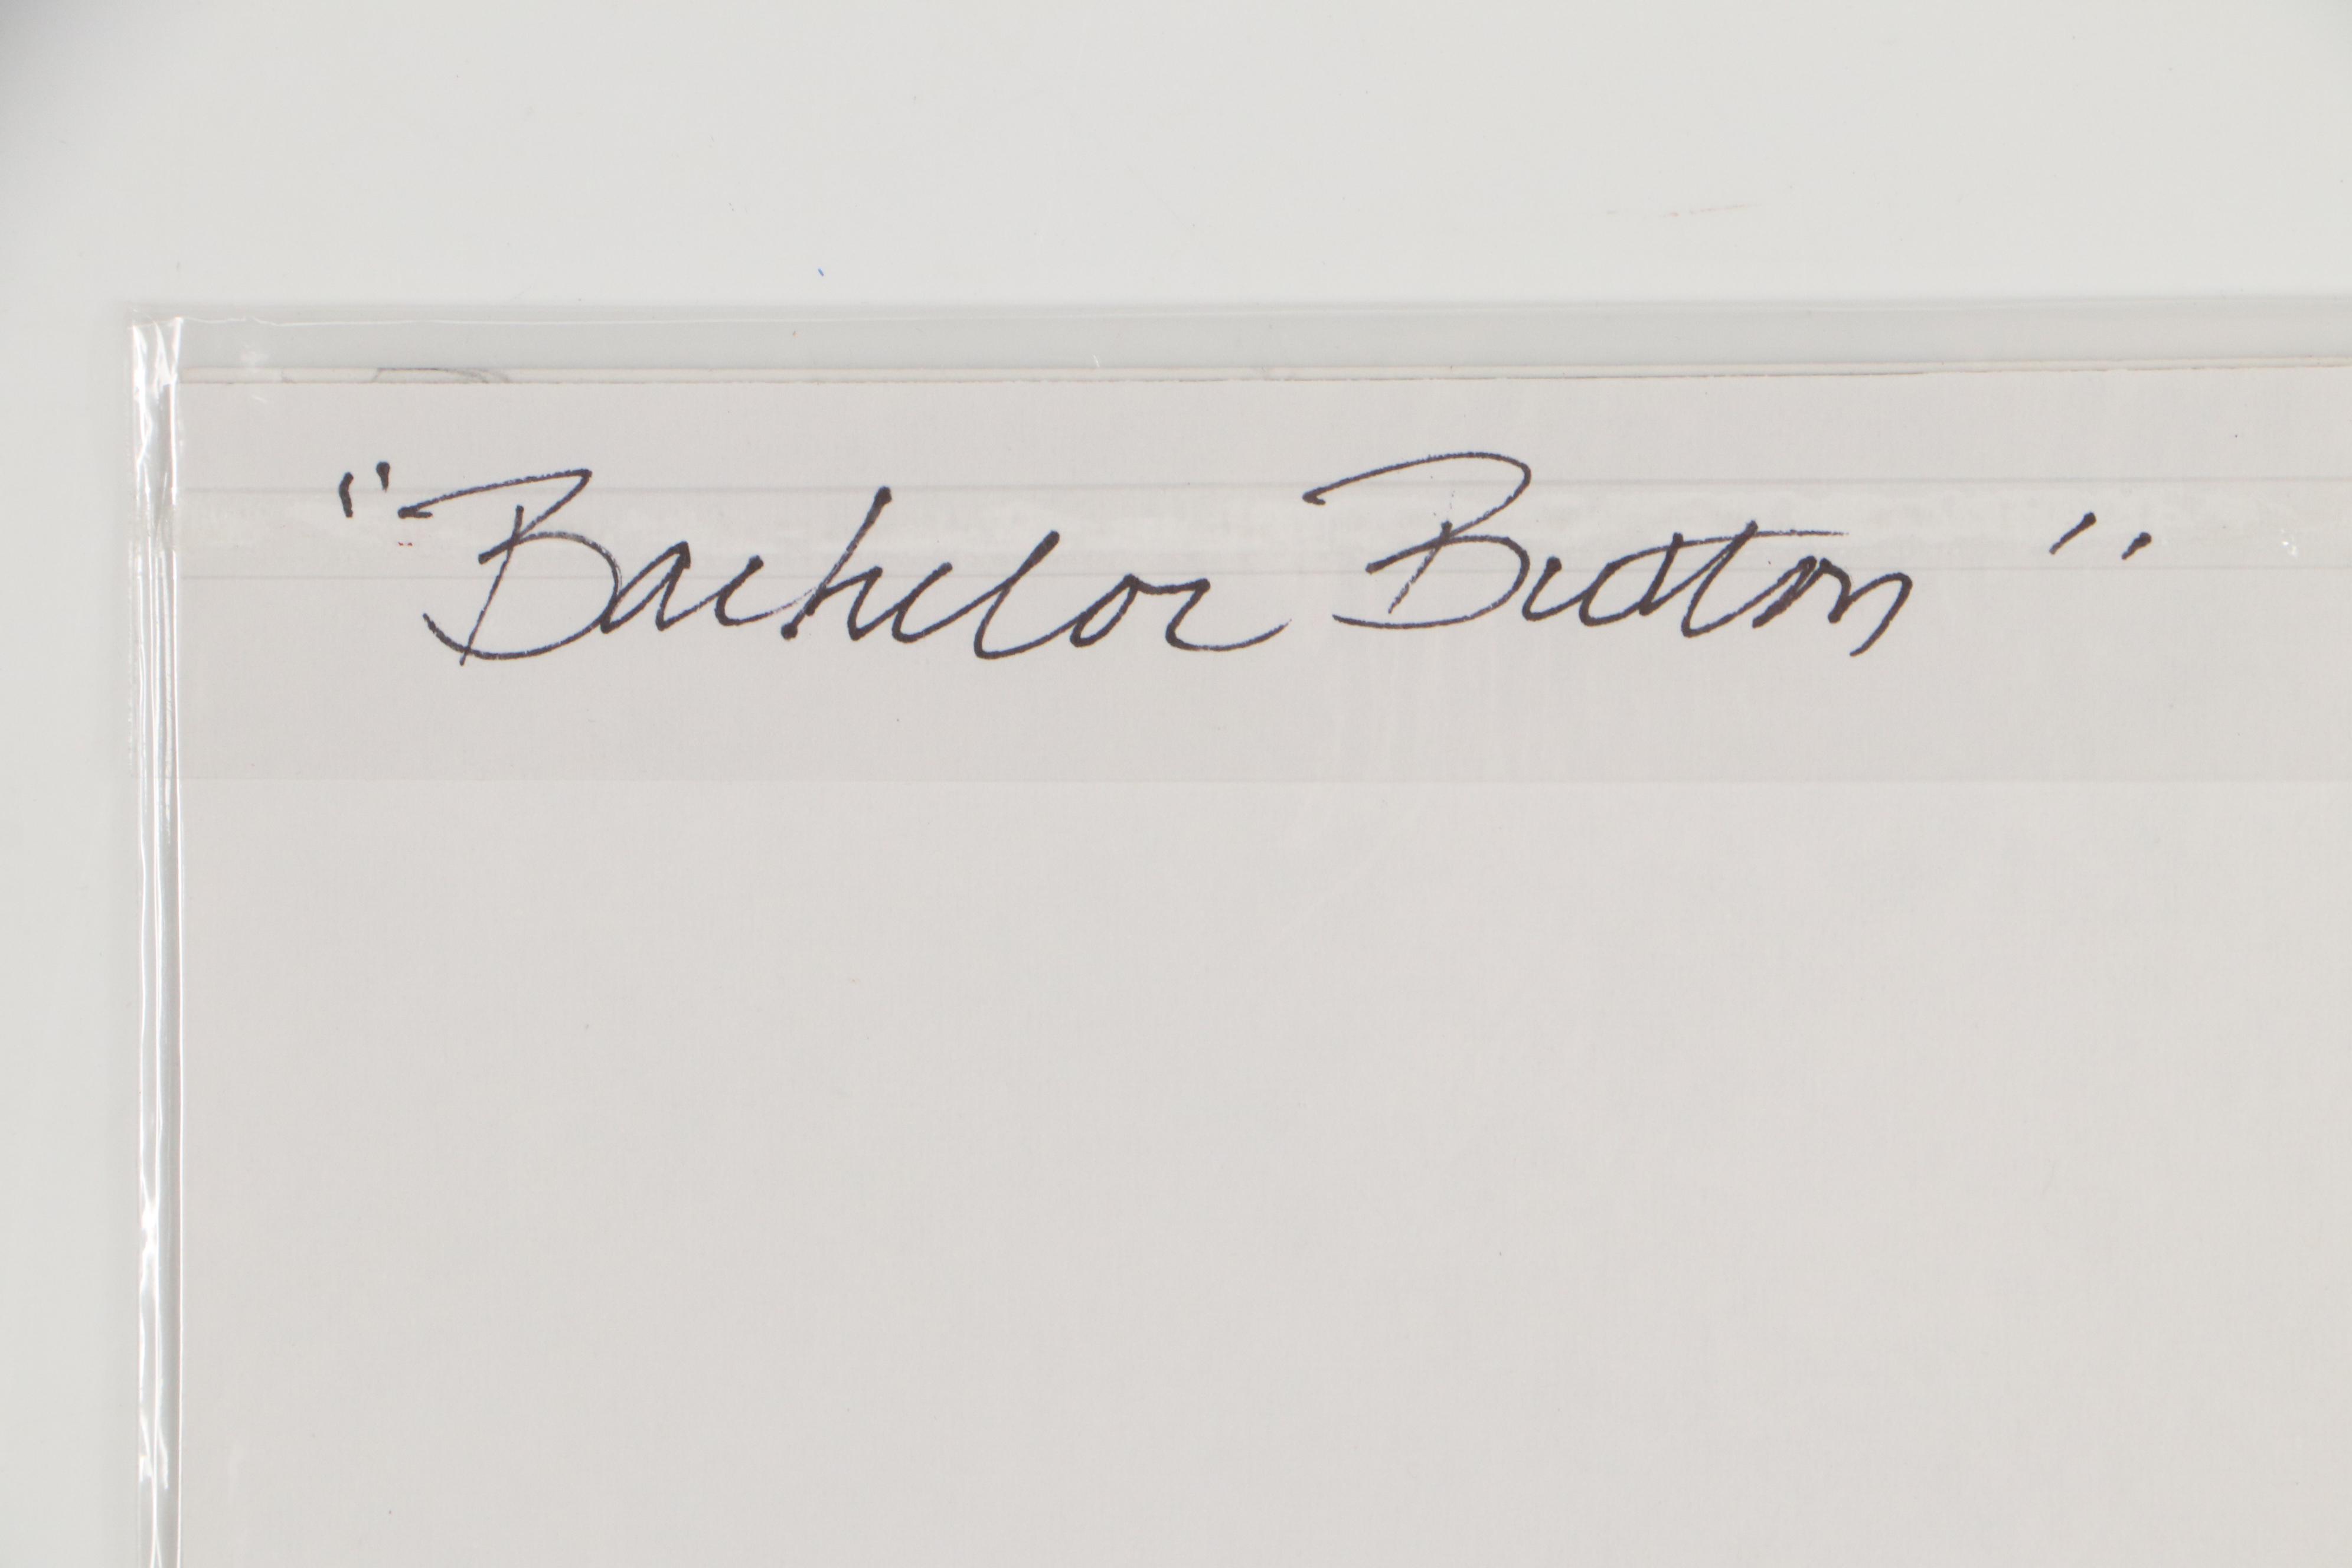 "Bachelor Button"